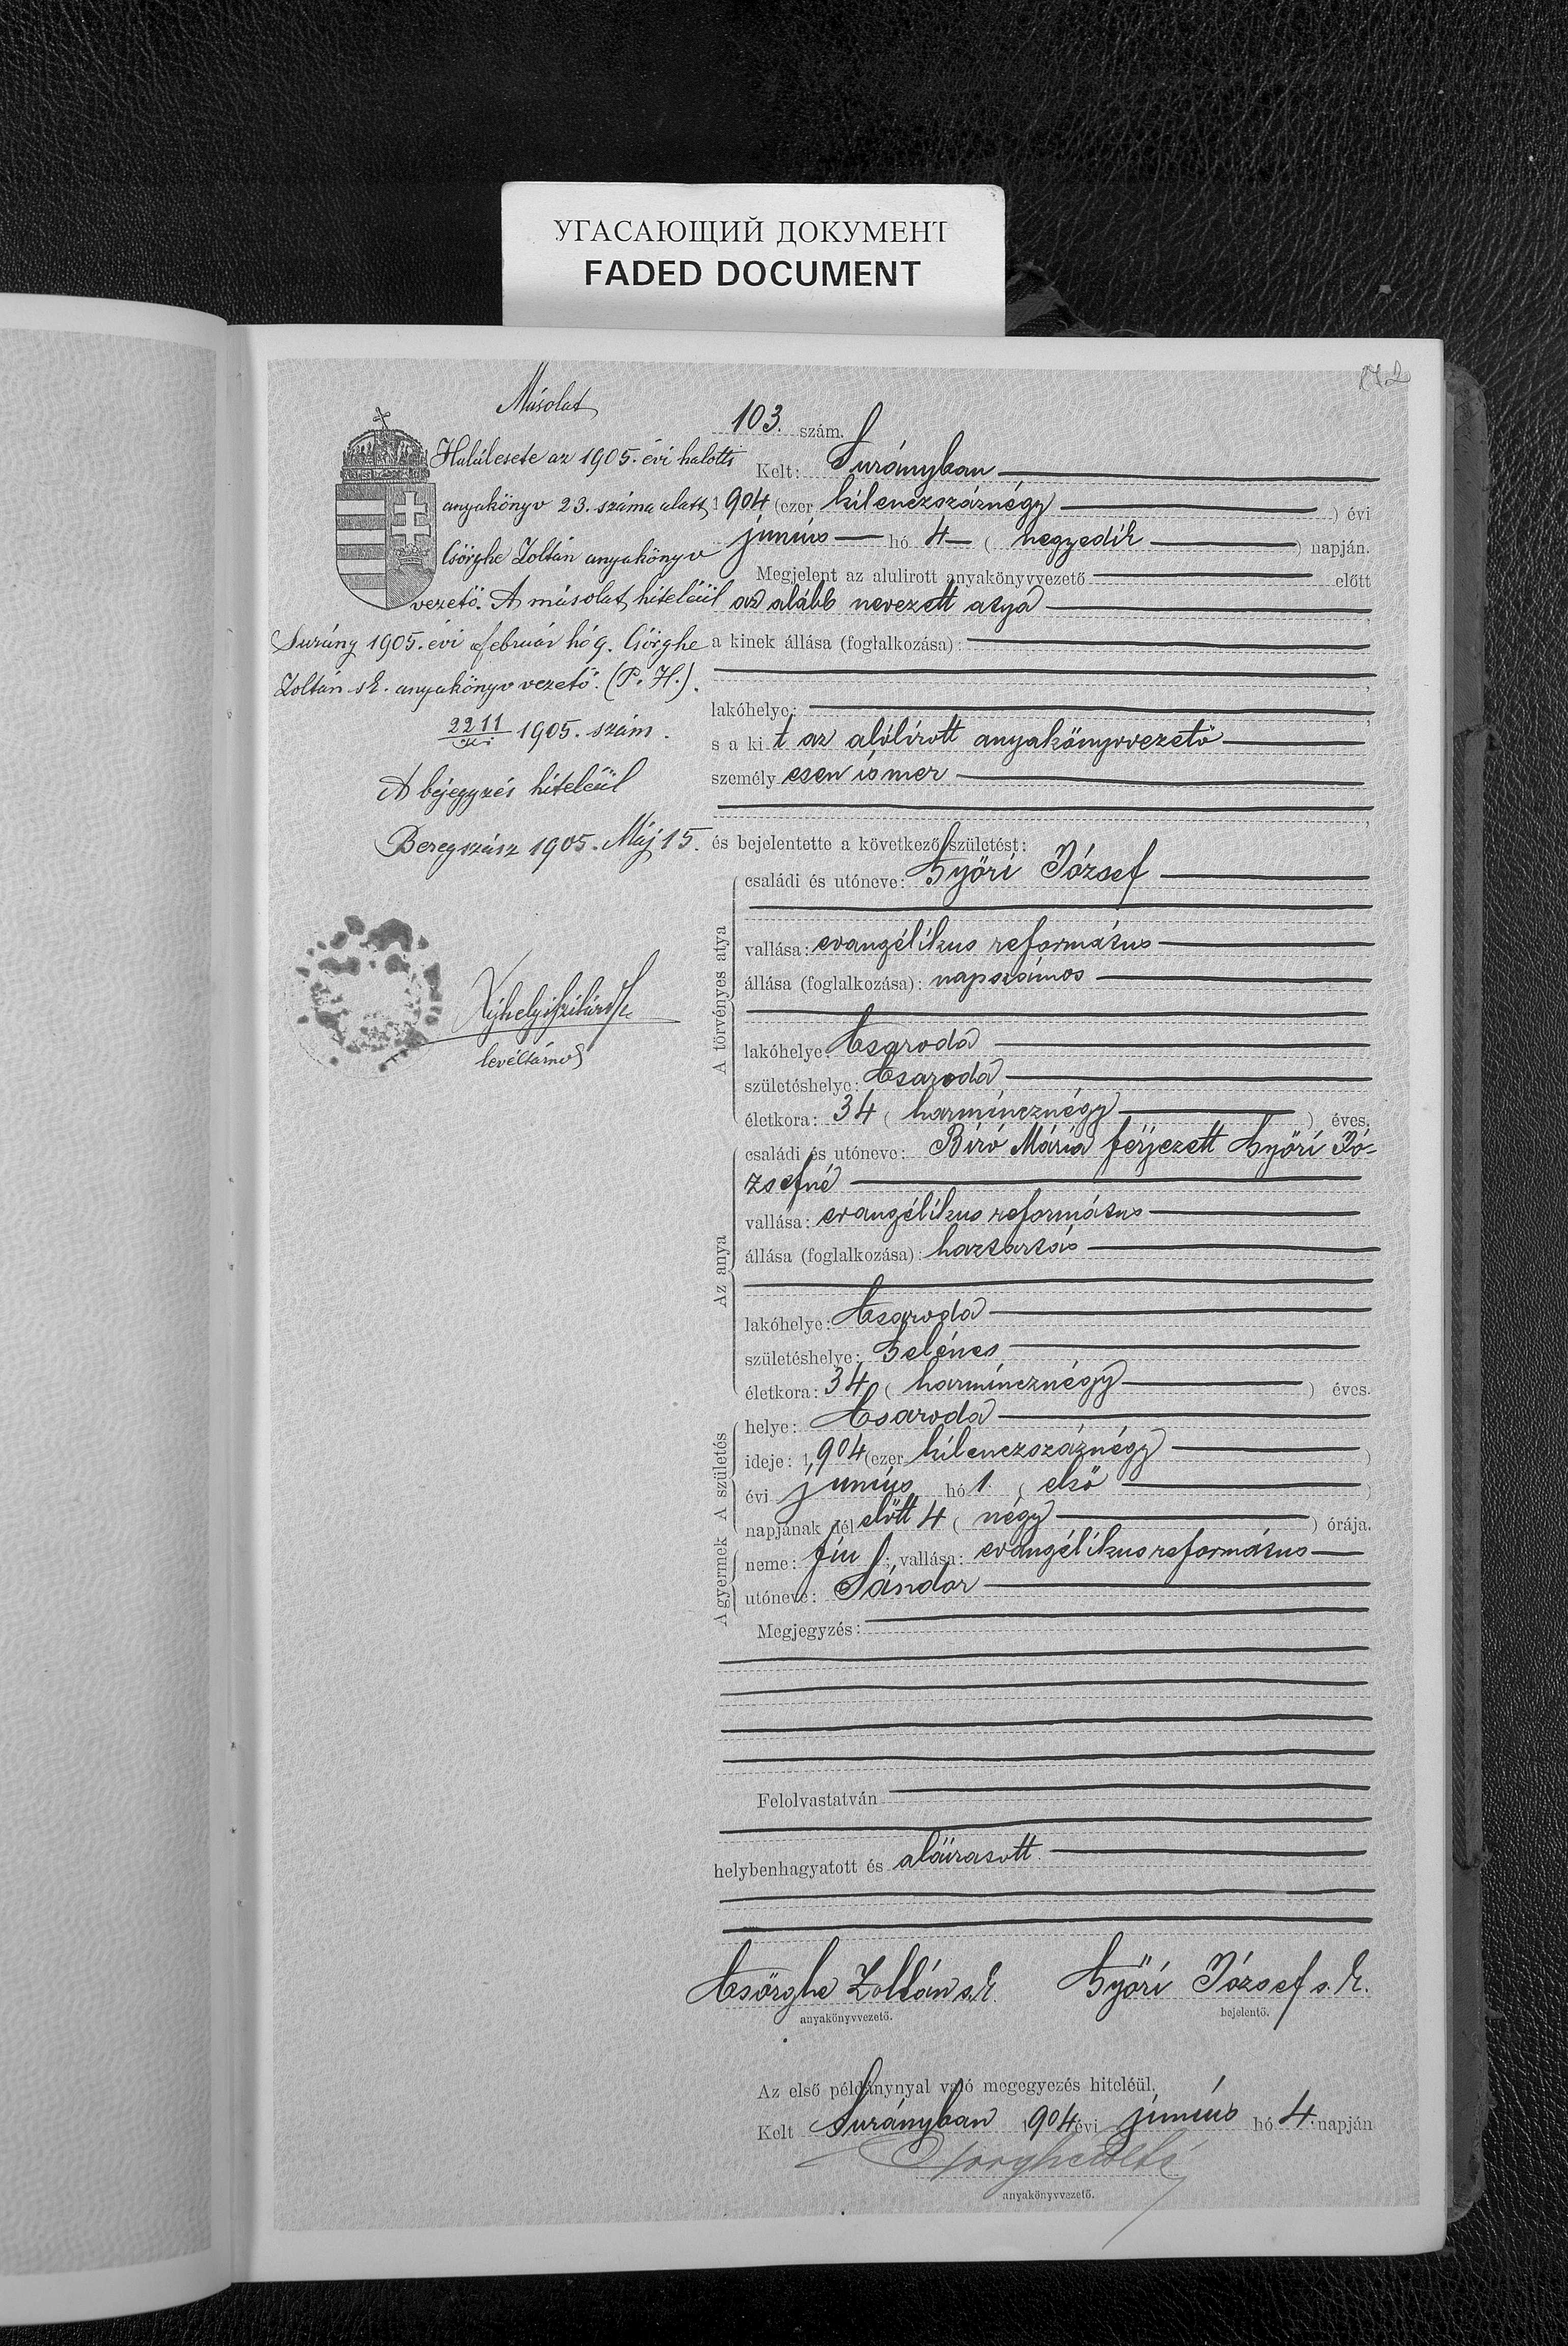 УГАСАЮЩИЙ ДОКУМЕНТ
FADED DOCUMENT
172
Másolat
Halálesete az 1905. évi halotti
anyakönyv 23. száma alatt
Csörghe Zoltán anyakönyv
vezető. A másolat hiteléül
Surány 1905. évi február hó 9. Csörghe
Zoltán sk. anyakönyvvezető. (P. H.).
2211 1905. szám.
A bejegyzés hiteléül
Beregszász 1905. Máj 15.
levéltárnok
103. szám.
Kelt: Surányban
1904 (ezer kilenczszáznégy ) évi
június hó 4 ( negyedik ) napján.
Megjelent az alulirott anyakönyvvezető előtt
az alább nevezett atya ,
a kinek állása (foglalkozása):
,
lakóhelye: ,
s a ki t az alólírott anyakönyvvezető
személy esen ismer
,
és bejelentette a következő születést:
A törvényes atya
családi és utóneve: Győri József
vallása: evangélikus református
állása (foglalkozása): napszámos
lakóhelye: Csaroda
születéshelye: Csaroda
életkora: 34 ( harmincznégy ) éves.
Az anya
családi és utóneve: Biró Mária férjezett Győri Jó-
zsefné
vallása: evangélikus református
állása (foglalkozása): haztartás
lakóhelye: Csaroda
születéshelye: Gelénes
életkora: 34 ( harmincznégy ) éves.
A születés
helye: Csaroda
ideje: 1904 (ezer kilenczszáznégy )
évi június hó 1 ( első )
napjának dél előtt 4 ( négy ) órája.
A gyermek
neme: fiu ; vallása: evangélikus református
utóneve: Sándor
Megjegyzés:
Felolvastatván
helybenhagyatott és aláiratott
Csörghe Zoltán s.k. Győri József s. k.
anyakönyvvezető. bejelentő.
Az első példánynyal való megegyezés hiteléül.
Kelt Surányban 1904 évi június hó 4. napján
anyakönyvvezető.